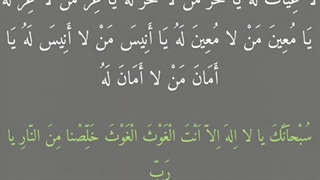 لَهُ يَا
يَا مُعِينَ مَنْ لا مُعِينَ لَهُ يَا أَنِيسَ مَنْ لا أَنِيسَ لَهُ يَا
أَمَانَ مَنْ لا أَمَانَ لَهُ
سُبْحَانَكَ يا لا اِلهَ اِلاّ اَنْتَ الْغَوْثَ الْغَوْثَ خَلِّصْنا مِنَ النّارِ يا
رَبِّ